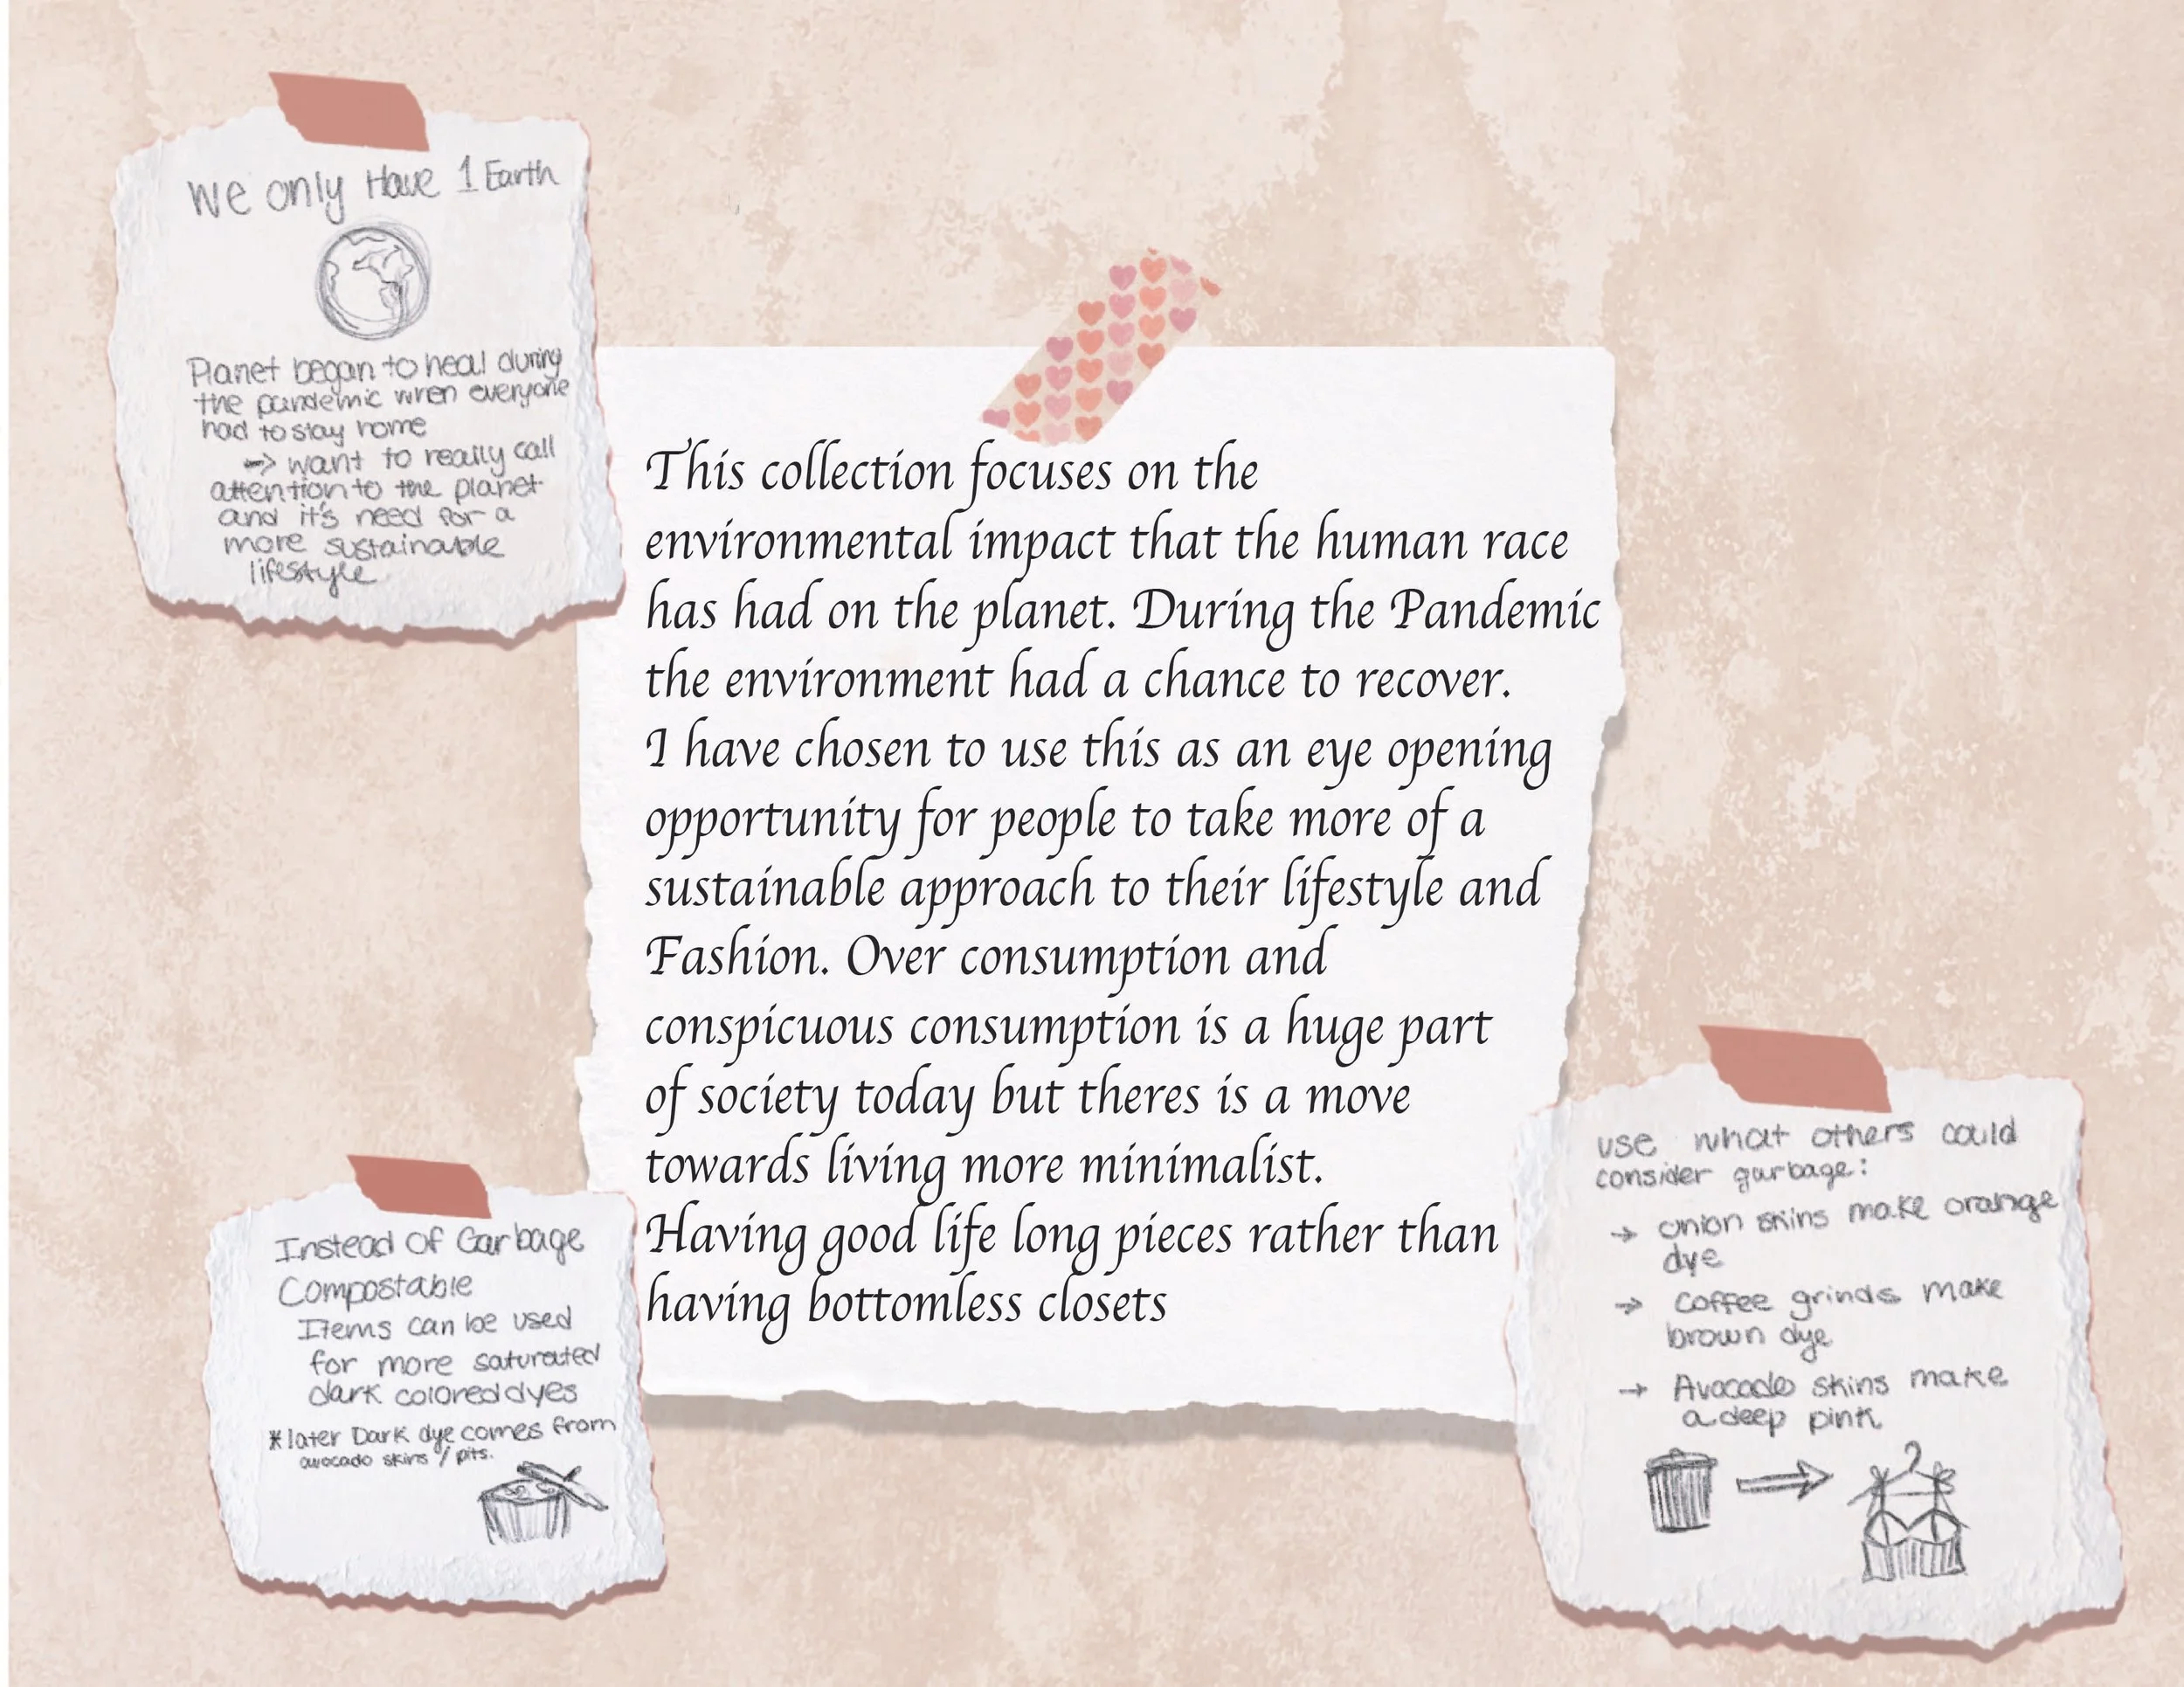 We only Have 1 Earth
Planet began to heal during
the pandemic when everyone
had to stay home
-> want to really call
attention to the planet
and it's need for a
more sustainable
lifestyle
This collection focuses on the
environmental impact that the human race
has had on the planet. During the Pandemic
the environment had a chance to recover.
I have chosen to use this as an eye opening
opportunity for people to take more of a
sustainable approach to their lifestyle and
Fashion. Over consumption and
conspicuous consumption is a huge part
of society today but theres is a move
towards living more minimalist.
Having good life long pieces rather than
having bottomless closets
Instead of Garbage
Compostable
Items can be used
for more saturated
dark colored dyes
*later Dark dye comes from
avocado skins / pits.
use what others could
consider garbage:
-> onion skins make orange
dye
-> Coffee grinds make
brown dye
-> Avocado skins make
a deep pink